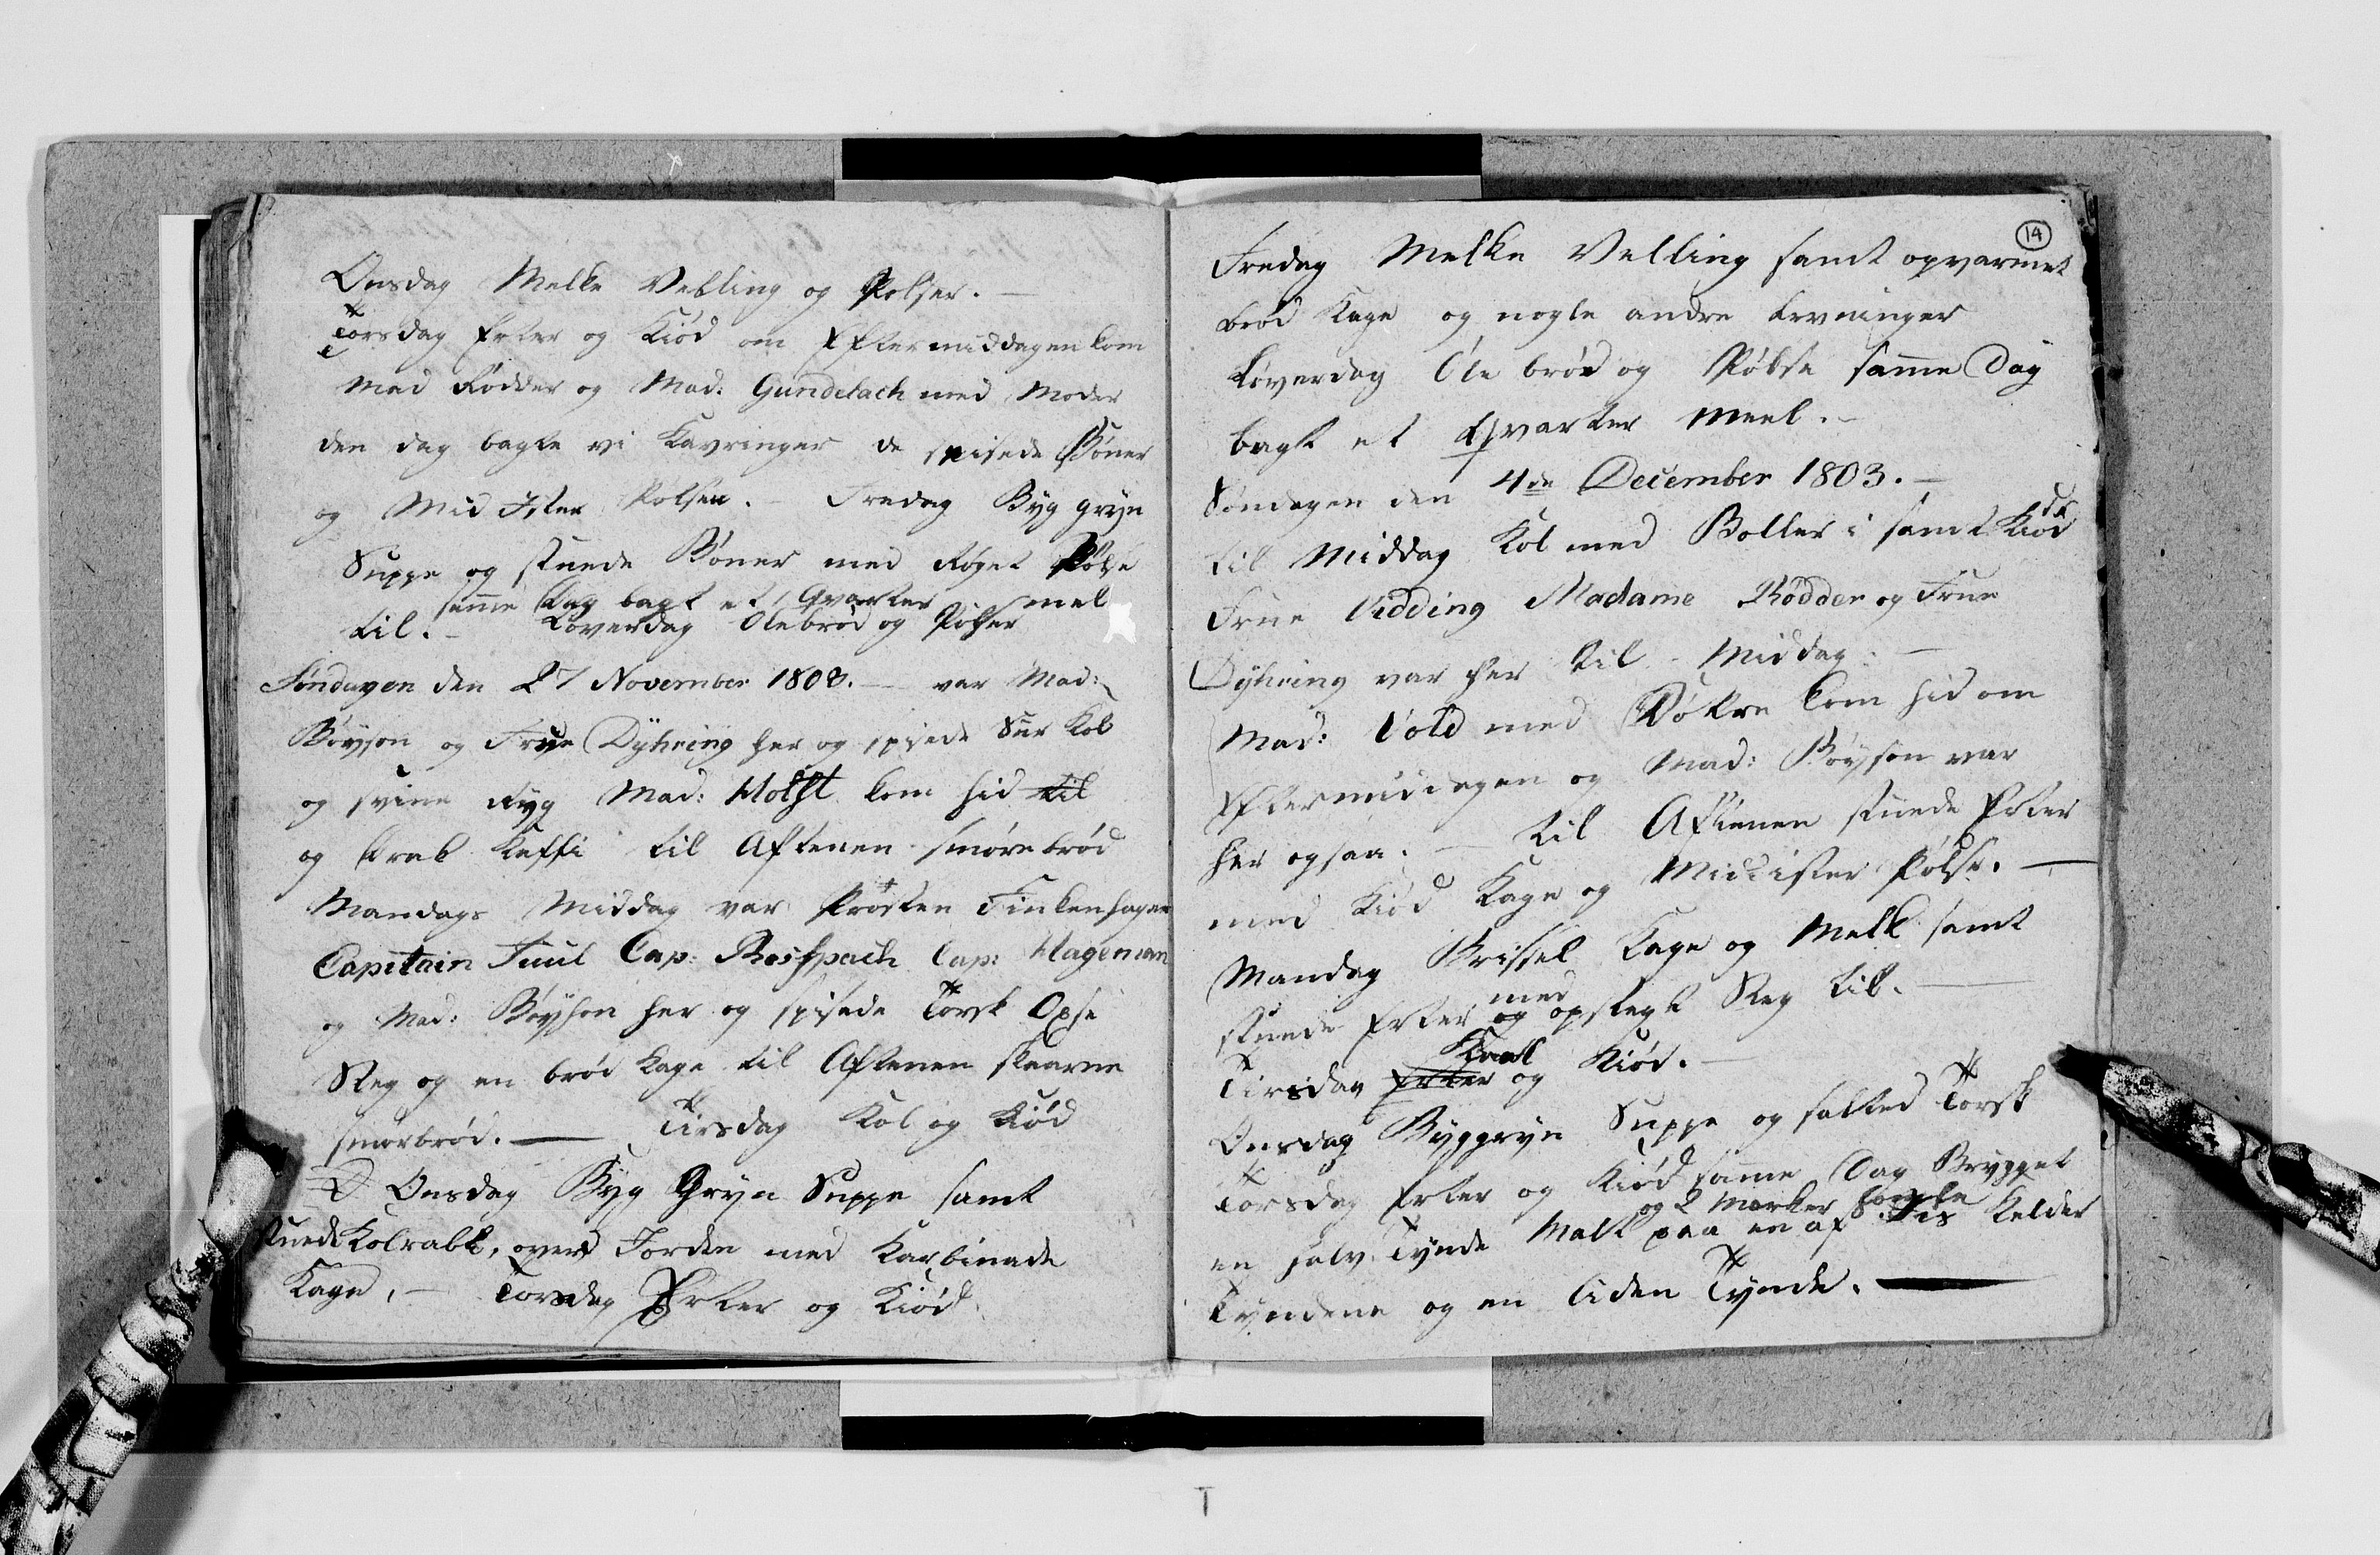 Onsdag Melke Velling og Polser. —
Torsdag Erter og Kiød om Eftermiddagen kom
Mad Rødder og Mad: Gundelach med Moder
den dag bagte vi Kavringer de spisede Bønner
og Mid Ister Polser. — Fredag Byg gryn
Suppe og stuede Bønner med Røget Pølse
samme Dag bagt et 1 Qvarter mel
til. — Løverdag Ølebrød og Pølser
Søndagen den 27 November 1803. — var Mad:
Bøyson og Frue Dyhring her og spisede Sur Kol
og svine Ryg Mad: Holst kom hid til
og drak Kaffi til Aftenen smørebrød
Mandags Middag var Prøsten Finkenhagen
Capitain Juul Cap: Rosspach Cap: Hageman
og Mad: Bøyson her og spisede Torsk Oxse
Steg og en brød Kage til Aftenen skaarne
smørbrød. — Tirsdag Kol og Kiød
Onsdag Byg Gryn Suppe samt
stuede Kolrabi, over Jorden med Karbinade
Kage, — Torsdag Erter og Kiød
14
Fredag Melke Velling samt opvarmet
brød Kage og nogle andre Levninger
Løverdag Øle brød og Pølse samme Dag
bagt et Qvarter Meel. —
Søndagen den 4de December 1803. —
til Middag Kol med Boller i samt Kiød
Frue Widding Madame Rødder og Frue
Dyhring var her til Middag. —
Mad: Vold med Døtre kom hid om
Eftermiddagen og Mad: Bøyson var
her ogsaa. — til Aftenen stuede Erter
med Kiød Kage og Midister Pølse. —
Mandag Brissel Kage og Melk samt
med
stuede Erter og opstegt Steg til. —
Kaal
Tirsdag Erter og Kiød. —
Onsdag Byggryn Suppe og salted Torsk
Torsdag Erter og Kiød samme Dag Brygget
og 2 Marker Homle
en halv Tynde Malt paa en af Kelder
Tyndene og en liden Tynde. —